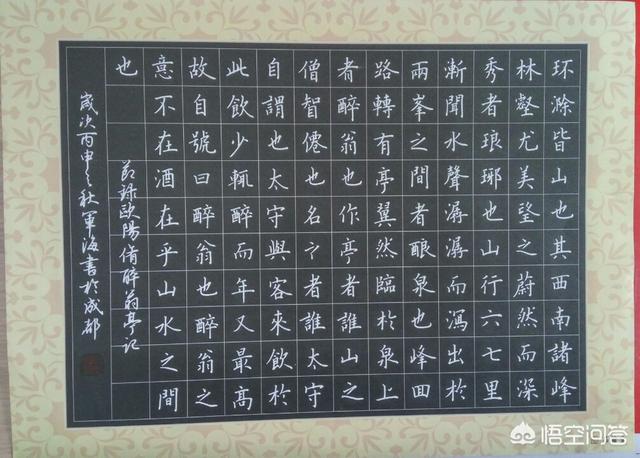 环滁皆山也其西南諸峰
林壑尤美望之蔚然而深
秀者琅瑘也山行六七里
漸聞水聲潺潺而瀉出於
兩峯之間者釀泉也峰回
路轉有亭翼然臨於泉上
者醉翁也作亭者誰山之
僧智僊也名之者誰太守
自謂也太守與客來飲於
此飲少輒醉而年又最高
故自號曰醉翁也醉翁之
意不在酒在乎山水之間
也
节録歐陽脩醉翁亭記
歲次丙申之秋軍海書於成都
悟空问答